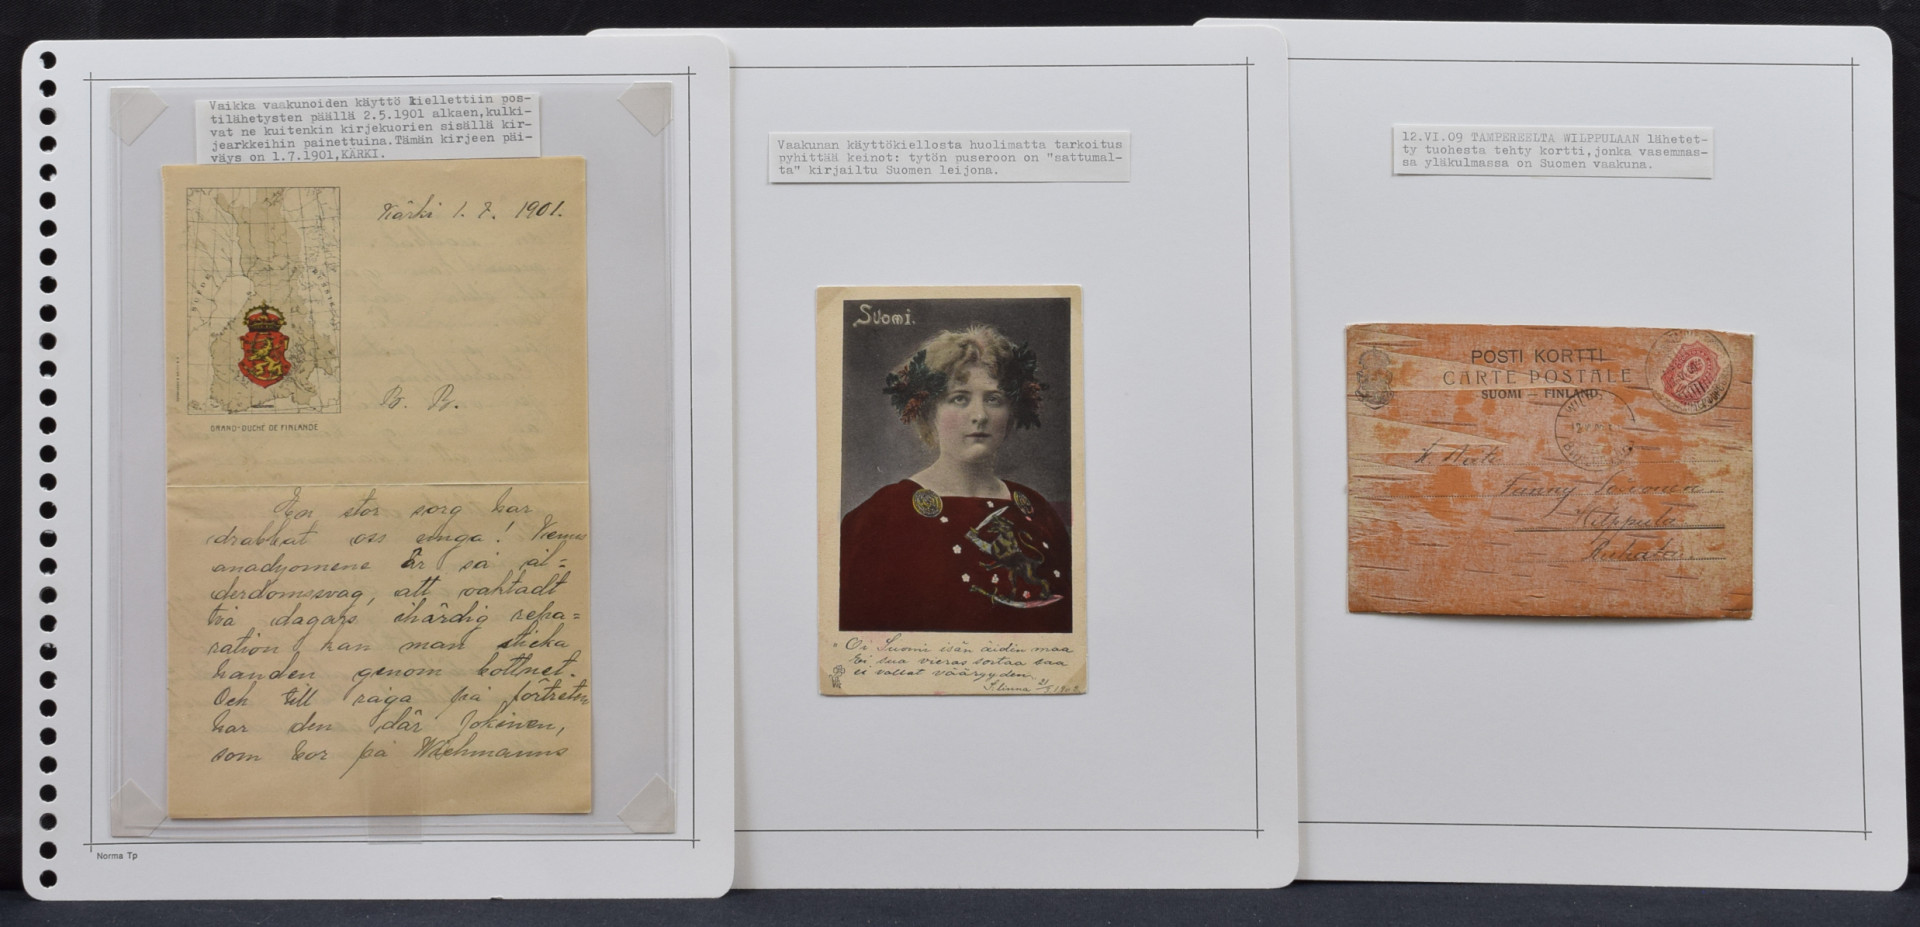 Vaikka vaakunoiden käyttö kiellettiin pos-
tilähetysten päällä 2.5.1901 alkaen,kulki-
vat ne kuitenkin kirjekuorien sisällä kir-
jearkkeihin painettuina.Tämän kirjeen päi-
väys on 1.7.1901,KÄRKI.
SUEDE
RUSSIE
GRAND-DUCHÉ DE FINLANDE
Kärki 1. 7. 1901.
En stor sorg har
drabbat oss unga! Venus
anadyomene är så ål=
derdomssvag, att oaktadt
två dagars ihärdig repa=
ration kan man sticka
handen genom bottnet.
Och till råga på förtreten
har den där Jokinen,
som bor på Wichmanns
Norma Tp
Vaakunan käyttökiellosta huolimatta tarkoitus
pyhittää keinot: tytön puseroon on "sattumal-
ta" kirjailtu Suomen leijona.
Suomi.
Oi Suomi isän äidin maa
Ei sua vieras sortaa saa
ei vallat vääryyden.
12.VI.09 TAMPEREELTA WILPPULAAN lähetet-
ty tuohesta tehty kortti,jonka vasemmas-
sa yläkulmassa on Suomen vaakuna.
POSTI KORTTI
CARTE POSTALE
SUOMI — FINLAND.
Fanny
Wilppula